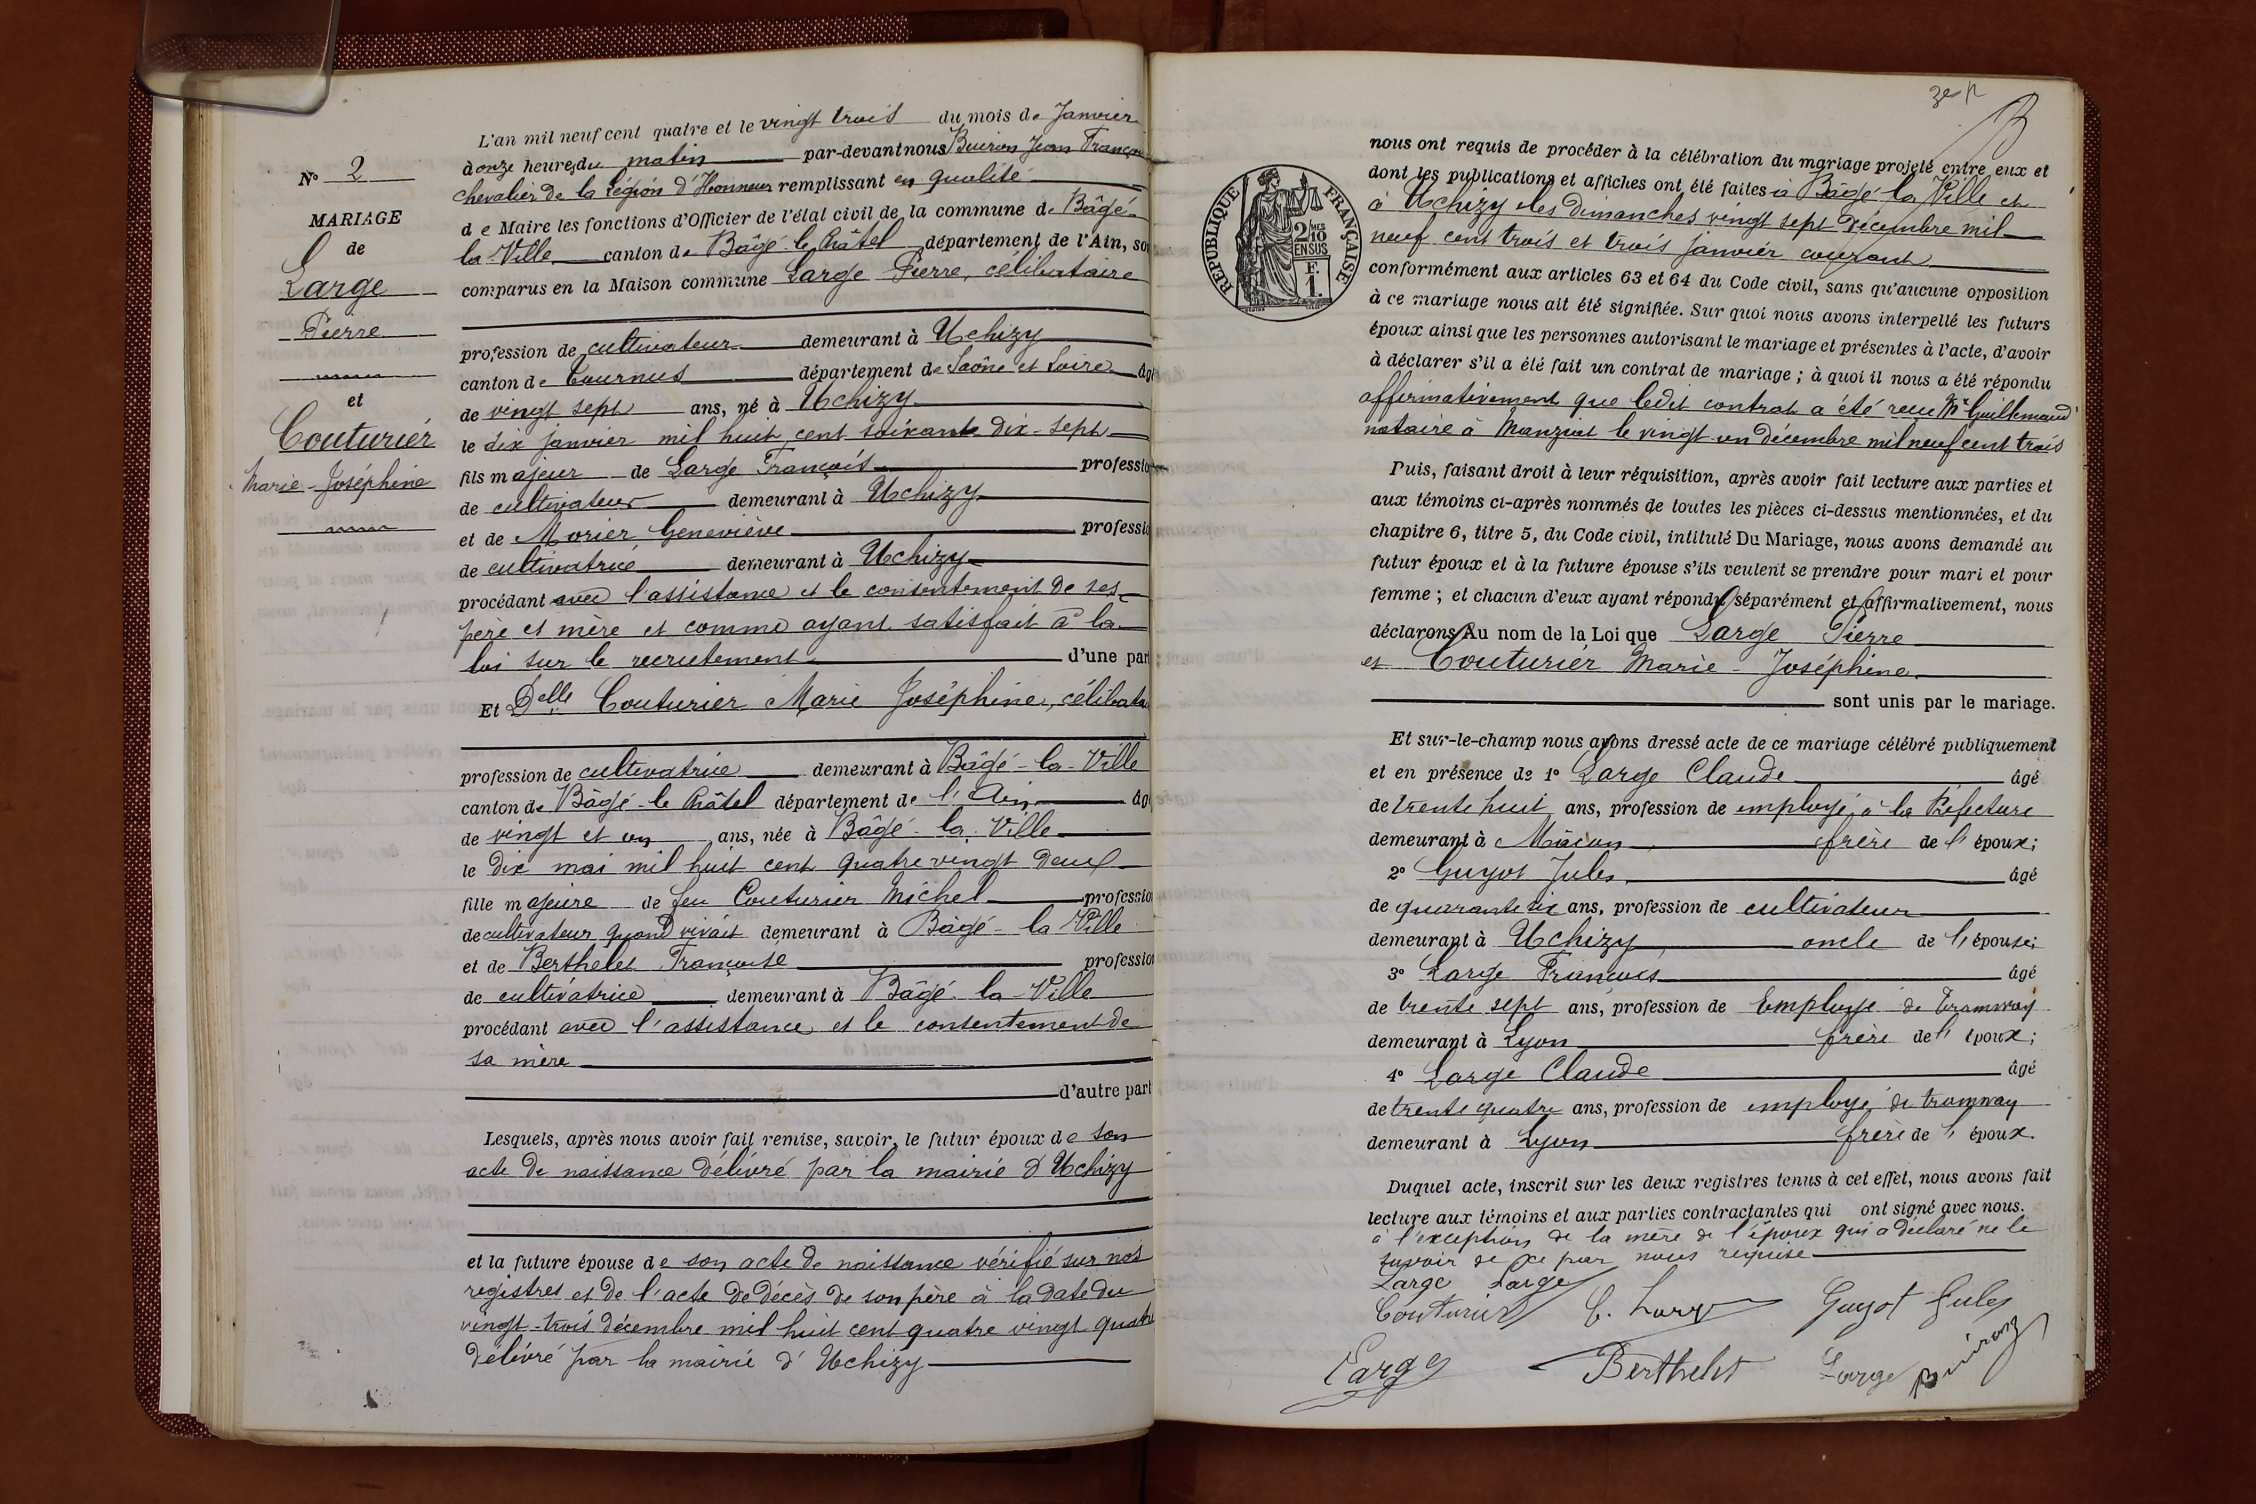 L'an mil neuf cent quatre et le vingt trois du mois de Janvier
à onze heures du matin par-devant nous Buiron Jean François
chevalier de la Légion d'Honneur remplissant en qualité
de Maire les fonctions d'Officier de l'état civil de la commune de Bâgé-
la-Ville canton de Bâgé-le-Châtel département de l'Ain, so
comparus en la Maison commune Large Pierre, célibataire
N° 2
MARIAGE
de
Large
Pierre
et
Couturier
Marie-Joséphine
profession de cultivateur demeurant à Uchizy
canton de Tournus département de Saône et Loire âgé
de vingt sept ans, né à Uchizy
le dix janvier mil huit cent soixante dix-sept
fils majeur de Large François professio
de cultivateur demeurant à Uchizy
et de Morier Geneviève professio
de cultivatrice demeurant à Uchizy
procédant avec l'assistance et le consentement de ses
père et mère et comme ayant satisfait à la
loi sur le recrutement d'une part
Et Delle Couturier Marie Joséphine, célibata
profession de cultivatrice demeurant à Bâgé-la-Ville
canton de Bâgé-le-Châtel département de l'Ain âgé
de vingt et un ans, née à Bâgé-la-Ville
le dix mai mil huit cent quatre vingt deux
fille majeure de feu Couturier Michel profession
de cultivateur quand vivait demeurant à Bâgé-la Ville
et de Berthelet Françoise professio
de cultivatrice demeurant à Bâgé-la-Ville
procédant avec l'assistance et le consentement de
sa mère
d'autre part
Lesquels, après nous avoir fait remise, savoir, le futur époux de son
acte de naissance délivré par la mairie d'Uchizy
et la future épouse de son acte de naissance vérifié sur nos
registres et de l'acte de décès de son père à la date du
vingt-trois décembre mil huit cent quatre vingt quatre
délivré par la mairie d'Uchizy
nous ont requis de procéder à la célébration du mariage projeté entre eux et
dont les publications et affiches ont été faites à Bâgé-la Ville et
à Uchizy les dimanches vingt sept décembre mil
neuf cent trois et trois janvier courant
RÉPUBLIQUE FRANÇAISE
2 MES
10
EN SUS
F.
1.
conformément aux articles 63 et 64 du Code civil, sans qu'aucune opposition
à ce mariage nous ait été signifiée. Sur quoi nous avons interpellé les futurs
époux ainsi que les personnes autorisant le mariage et présentes à l'acte, d'avoir
à déclarer s'il a été fait un contrat de mariage ; à quoi il nous a été répondu
affirmativement que ledit contrat a été reçu Me Guillemaud
notaire à Manziat le vingt un décembre mil neuf cent trois
Puis, faisant droit à leur réquisition, après avoir fait lecture aux parties et
aux témoins ci-après nommés de toutes les pièces ci-dessus mentionnées, et du
chapitre 6, titre 5, du Code civil, intitulé Du Mariage, nous avons demandé au
futur époux et à la future épouse s'ils veulent se prendre pour mari et pour
femme ; et chacun d'eux ayant répondu séparément et affirmativement, nous
déclarons Au nom de la Loi que Large Pierre
et Couturier Marie-Joséphine
sont unis par le mariage.
Et sur-le-champ nous avons dressé acte de ce mariage célébré publiquement
et en présence de 1° Large Claude âgé
de trente huit ans, profession de employé à la Préfecture
demeurant à Mâcon frère de l'époux;
2° Guyot Jules âgé
de quarante six ans, profession de cultivateur
demeurant à Uchizy oncle de l'épouse;
3° Large François âgé
de trente sept ans, profession de Employé de Tramway
demeurant à Lyon frère de l'époux;
4° Large Claude âgé
de trente quatre ans, profession de employé de tramway
demeurant à Lyon frère de l'époux.
Duquel acte, inscrit sur les deux registres tenus à cet effet, nous avons fait
lecture aux témoins et aux parties contractantes qui ont signé avec nous.
à l'exception de la mère de l'époux qui a déclaré ne le
savoir de ce par nous requise
Large Large
Couturier C. Large Guyot Jules
Large Berthelet Large Buiron